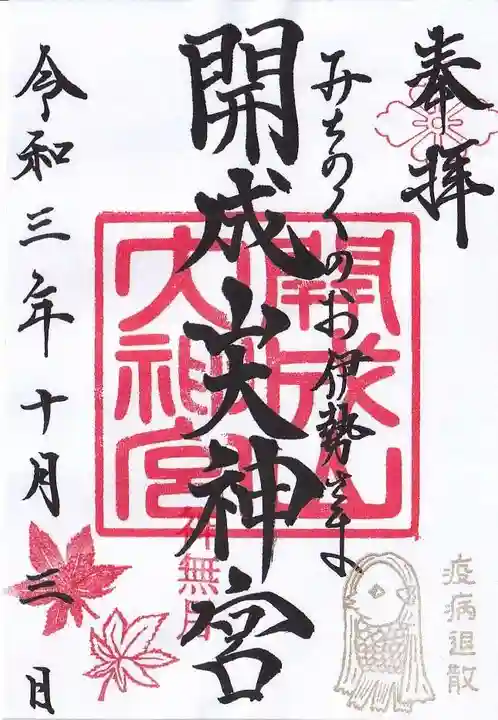 奉拝
みちのくのお伊勢さま
開成山大神宮
開成山大神宮
神無月
令和三年十月三日
疫病退散